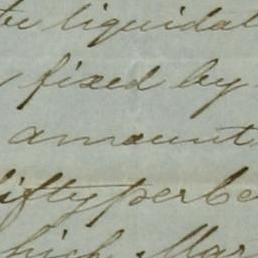 be liquidat
fixed by
amount
fifty per ce
which Mar